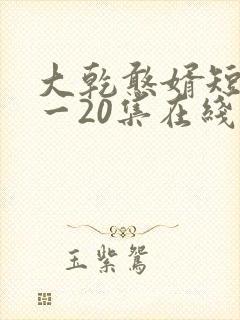 大乾憨婿短
一20集在线
玉紫鸳